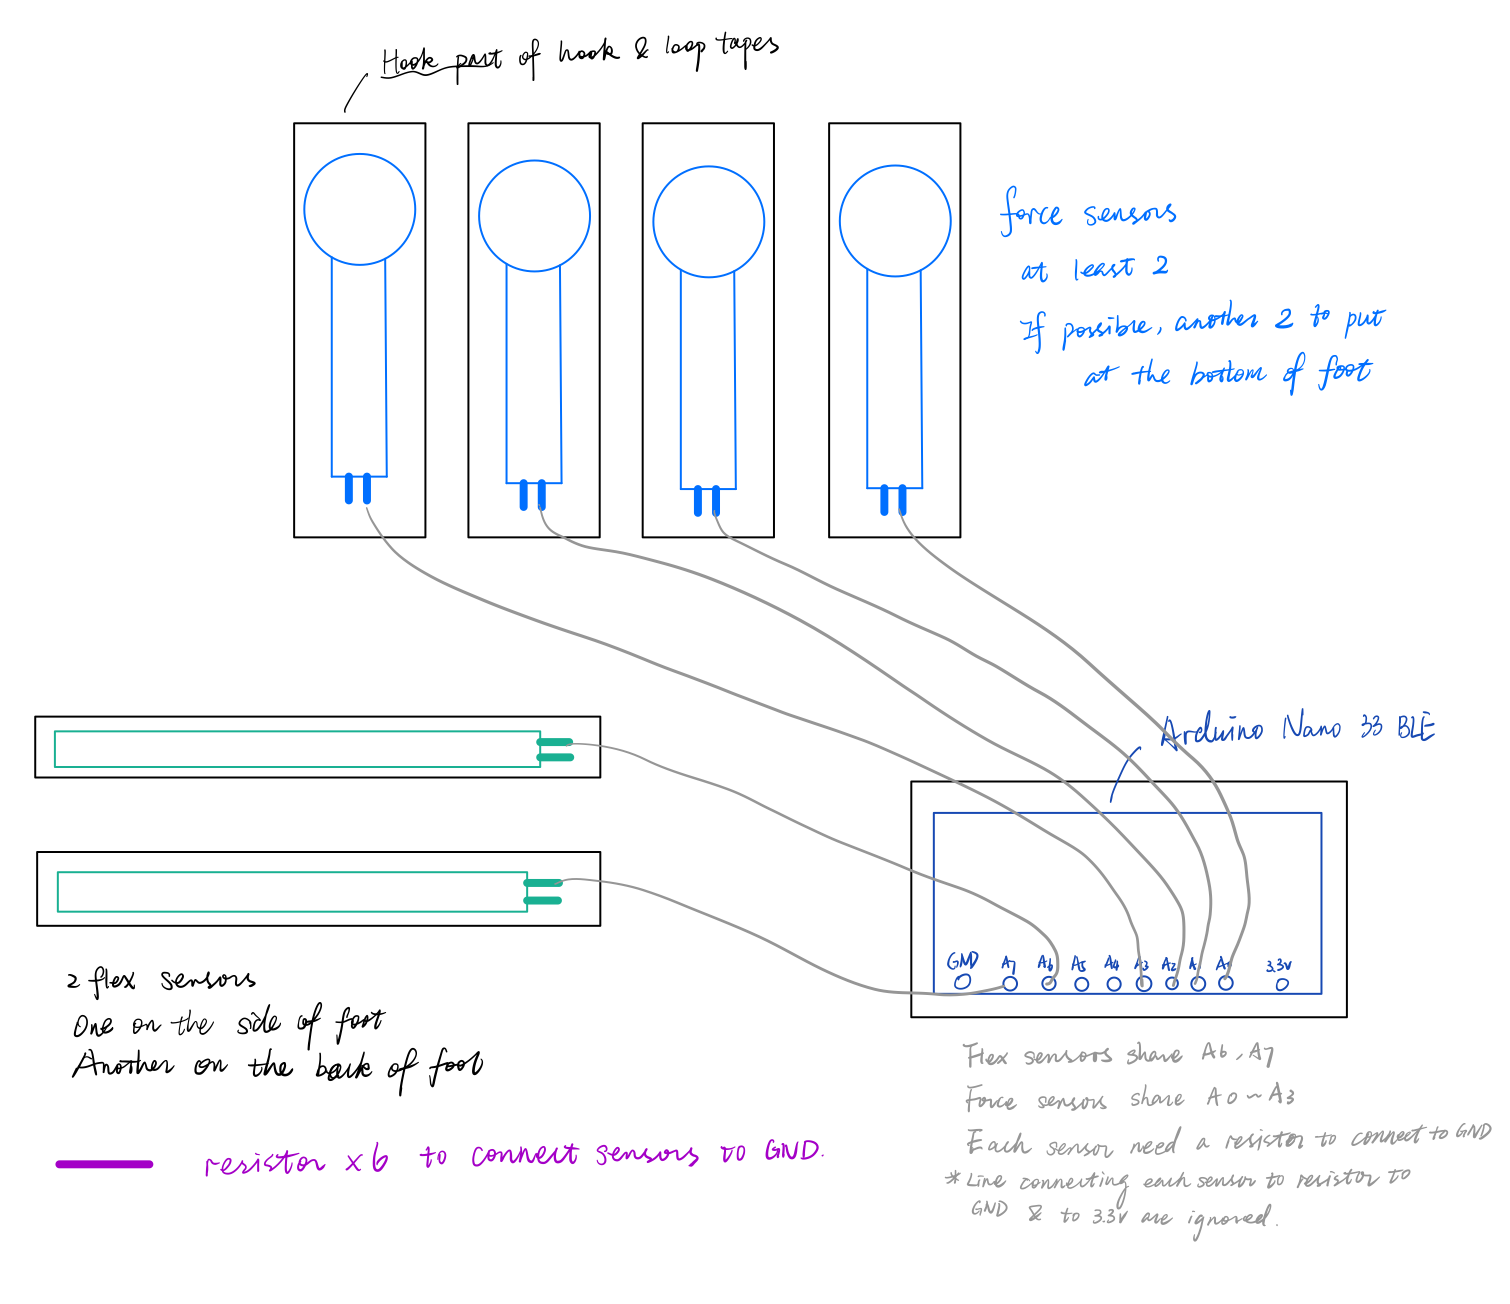 Hook part of hook & loop tapes
force sensors
at least 2
If possible, another 2 to put
at the bottom of foot
Arduino Nano 33 BLE
GND A7 A6 A5 A4 A3 A2 A1 A0 3.3V
2 flex sensors
One on the side of foot
Another on the back of foot
resistor x6 to connect sensors to GND.
Flex sensors share A6, A7
Force sensors share A0 ~ A3
Each sensor need a resistor to connect to GND
* Line connecting each sensor to resistor to
GND & to 3.3V are ignored.